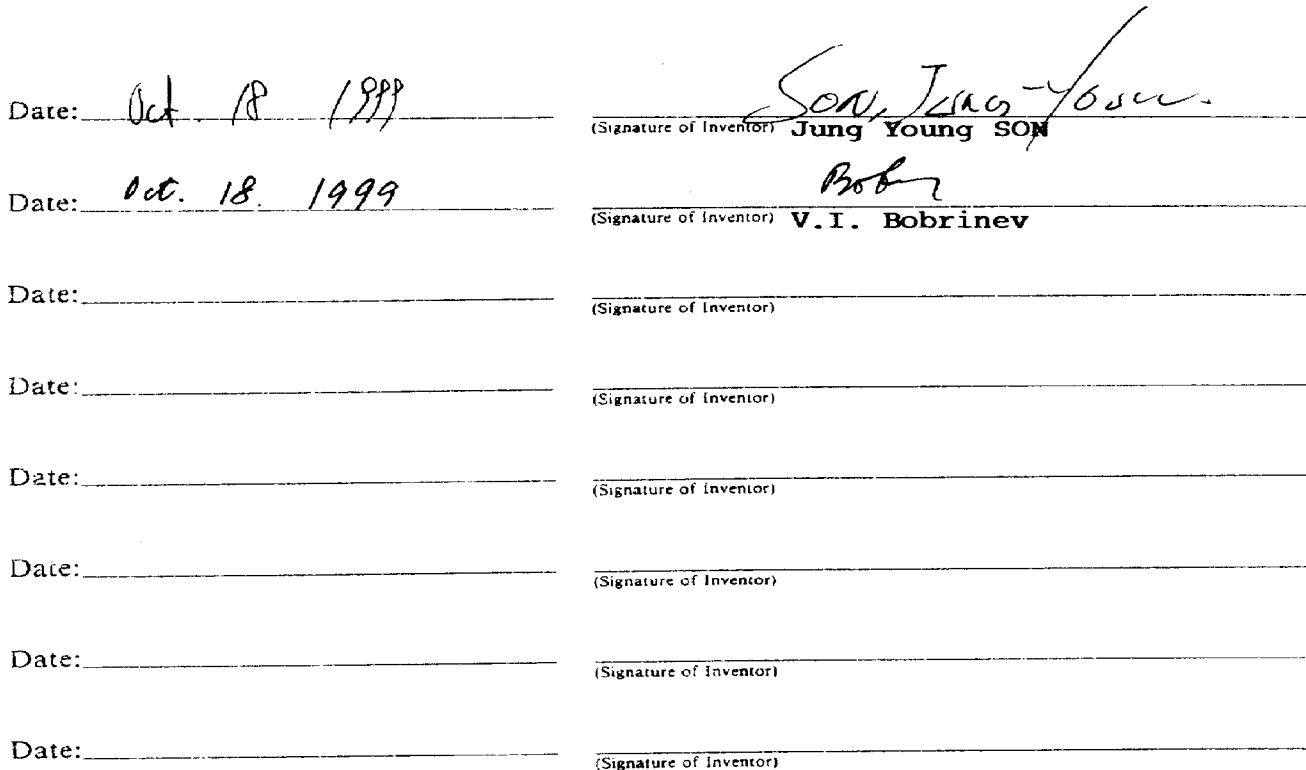 Date: Oct. 18 1999 SON, Jung-Young.
(Signature of Inventor) Jung Young SON
Date: Oct. 18. 1999
(Signature of Inventor) V.I. Bobrinev
Date:
(Signature of Inventor)
Date:
(Signature of Inventor)
Date:
(Signature of Inventor)
Date:
(Signature of Inventor)
Date:
(Signature of Inventor)
Date:
(Signature of Inventor)